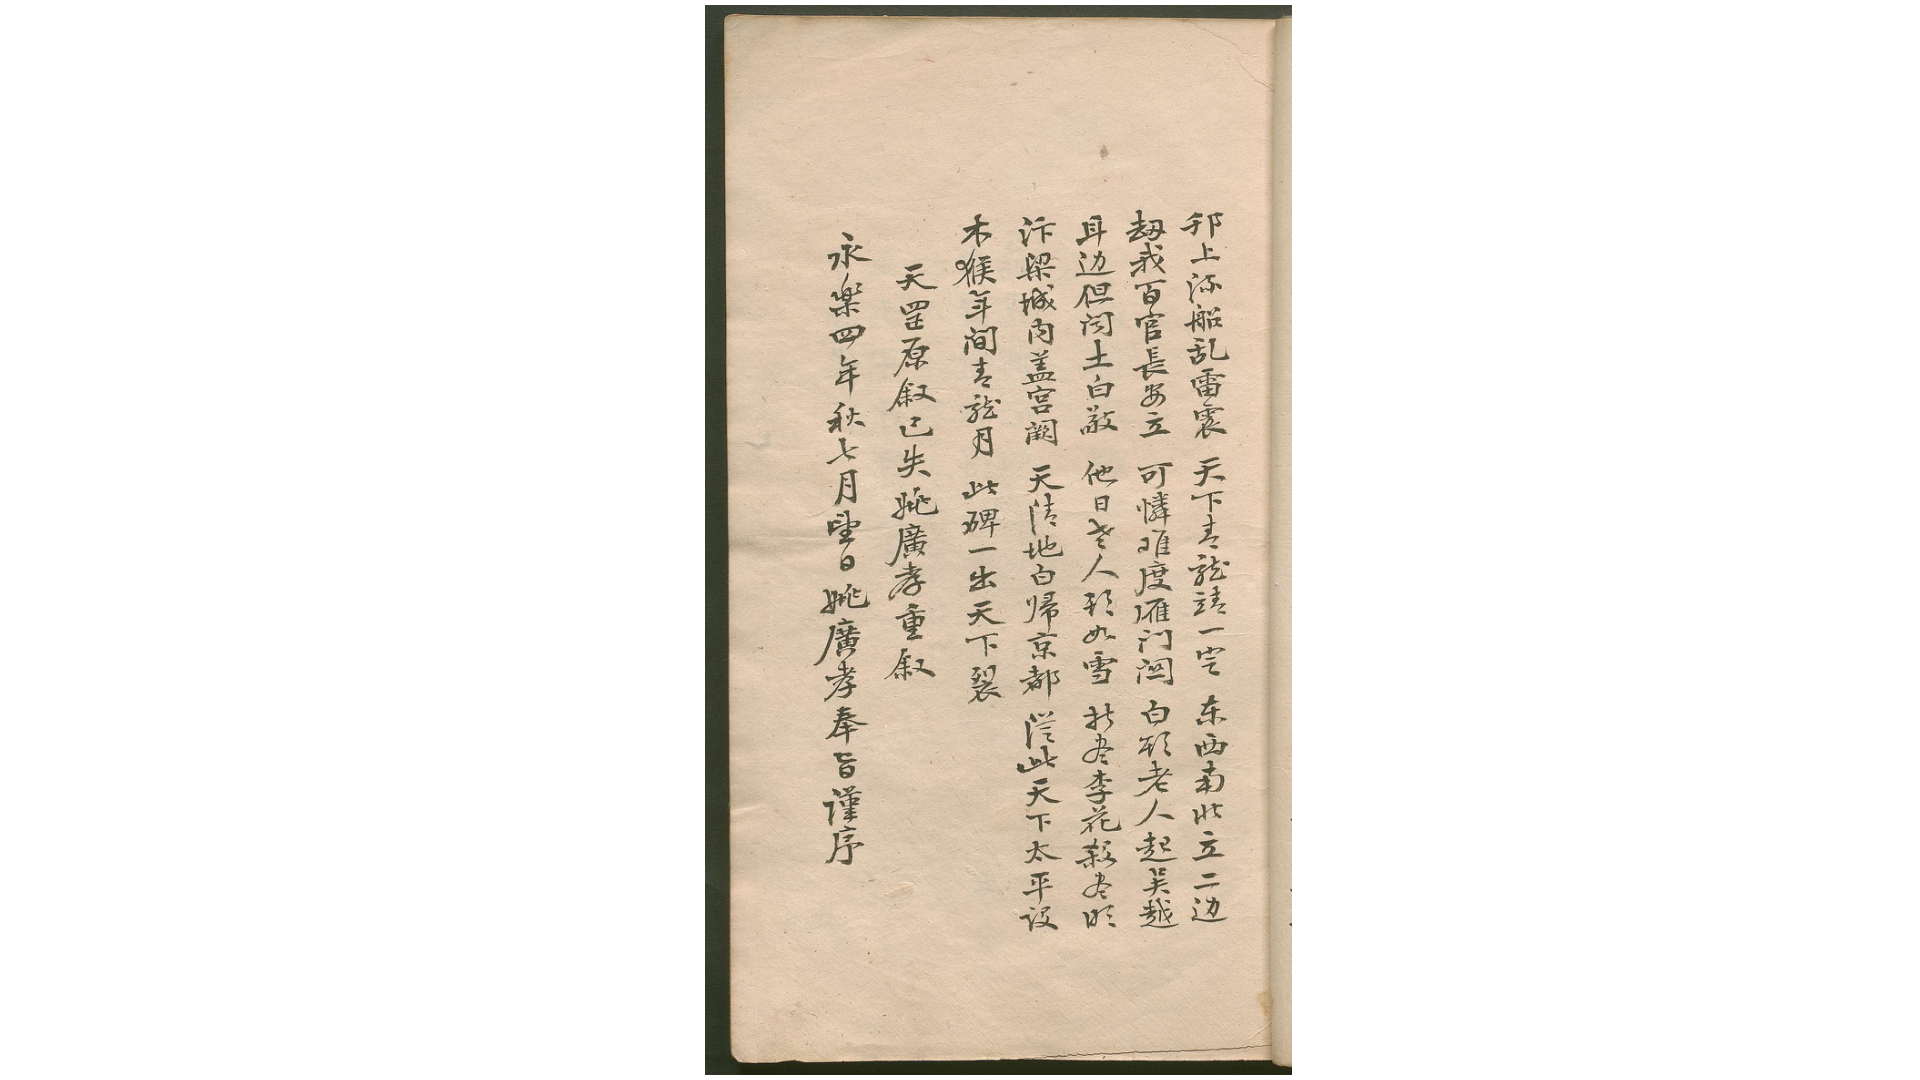 邗上添船乱雷震 天下青龍靖一空 东西南北立二边
劫我百官長安立 可憐难度雁门関 白头老人起吴越
耳边但闻土白敲 他日老人头如雪 折尽李花殺尽
汴梁城内盖宫阙 天清地白帰京都 從此天下太平设
木猴年间青龍月 此碑一出天下裂
天罡原叙已失姚廣孝重叙
永樂四年秋七月望日姚廣孝奉旨谨序